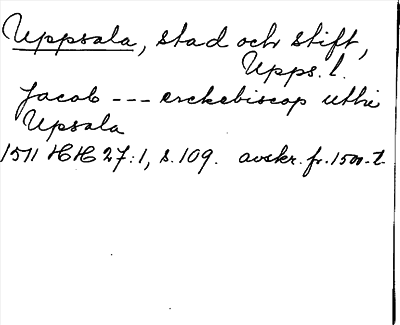 Uppsala, stad och stift,
Upps. l.
Jacob --- erckebiscop uthi
Upsala
1511 HH 27:1, s. 109. avskr. fr. 1500-t.